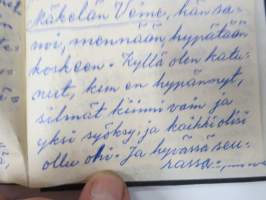 Mäkelän Veine, hän sa-
noi, mennään hypätään
koskeen. Kyllä olen katu-
nut, kun en hypännyt,
silmät kiinni vain ja
yksi syöksy, ja kaikki olisi
ollu ohi. Ja hyvässä seu-
rassa.